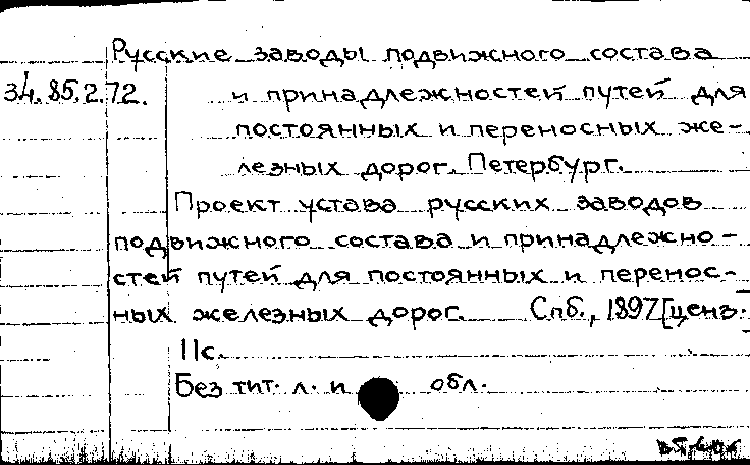 Русские заводы подвижного состава
34.85.2.72. и принадлежностей путей для
постоянных и переносных же-
лезных дорог. Петербург.
Проект устава русских заводов
подвижного состава и принадлежно-
стей путей для постоянных и перенос-
ных железных дорог. Спб., 1897 [ценз.
11с.
Без тит. л. и обл.